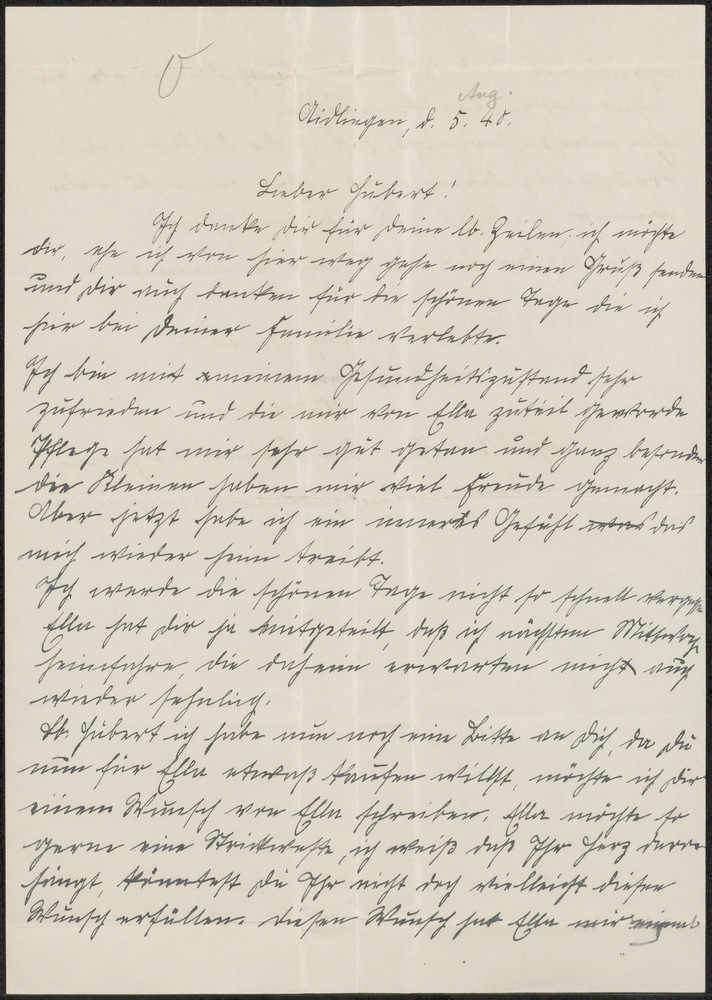 Aug.
Aidlingen, d. 5. 40.
Lieber Hubert!
Ich danke Dir für Deine lb. Zeilen; ich möchte
dir, ehe ich von hier weg gehe noch einen Gruß senden
und Dir auch danken für die schönen Tage die ich
hier bei Deiner Familie verlebte.
Ich bin mit meinem Gesundheitszustand sehr
zufrieden und die mir von Ella zuteil geworde
Pflege hat mir sehr gut getan und ganz besonder
die Kleinen haben mir viel Freude gemacht.
Aber jetzt habe ich ein inneres Gefühl das
mich wieder heim treibt.
Ich werde die schönen Tage nicht so schnell vergess
Ella hat Dir ja mitgeteilt, daß ich nächsten Mittwoch
heimfahre, die daheim erwarten mich auch
wieder sehnlich.
Lb. Hubert ich habe nun noch eine Bitte an Dich, da Du
nun für Ella etwaß kaufen willst, möchte ich Dir
einem Wunsch von Ella schreiben. Ella möchte so
gerne eine Strickweste, ich weiß daß Ihr Herz daran
hängt, könntest Du Ihr nicht doch vielleicht diesen
Wunsch erfüllen. Diesen Wunsch hat Ella mir einmal